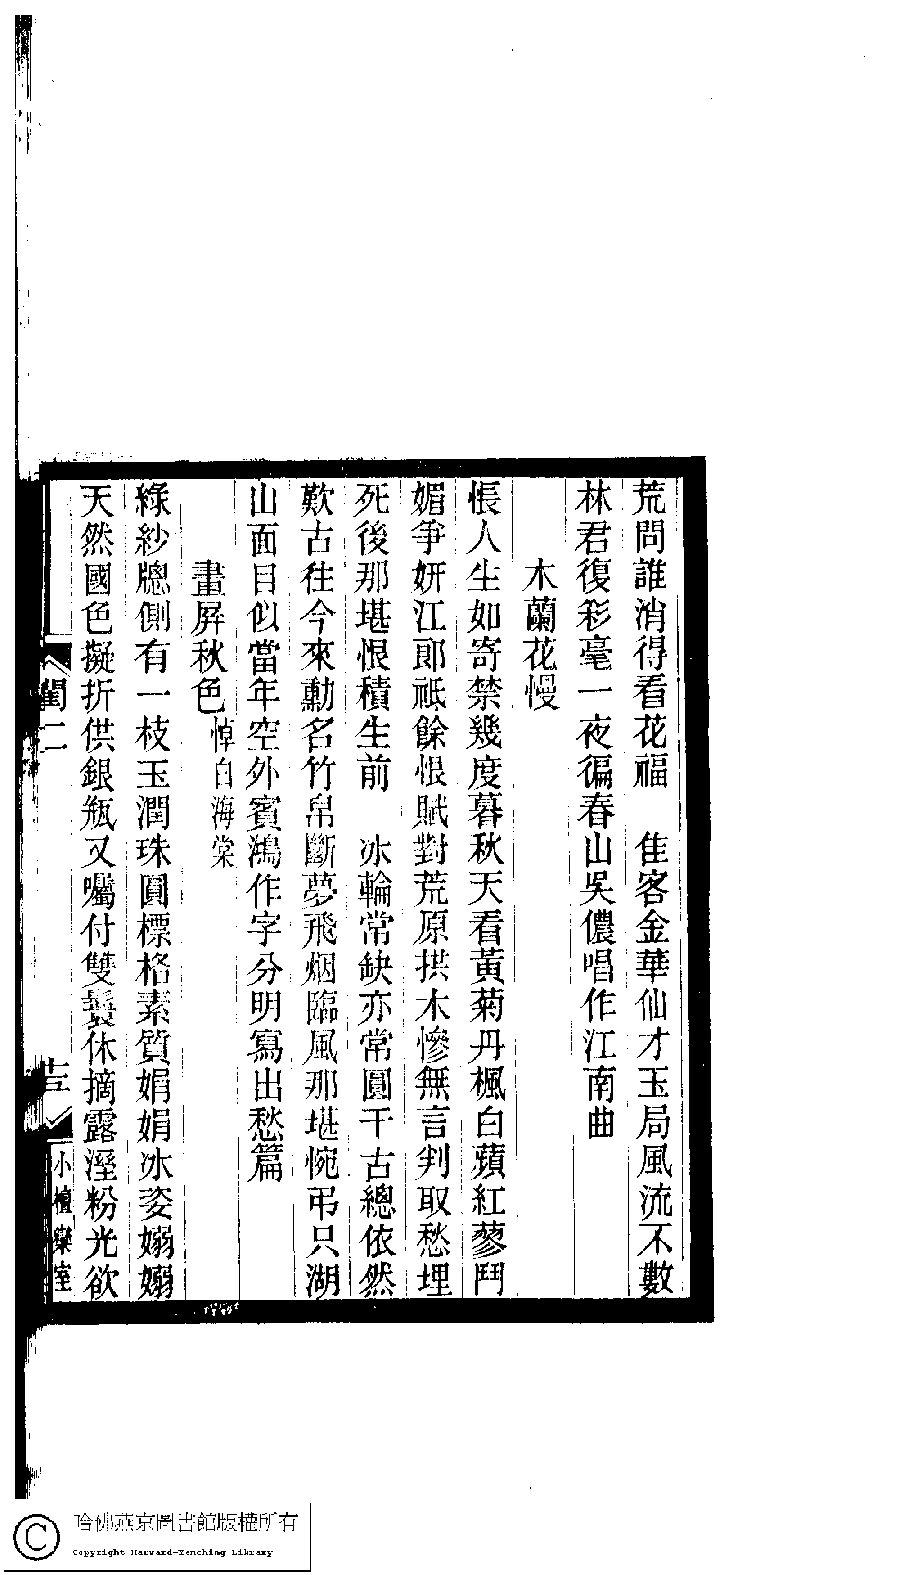 荒問誰消得看花福　隹客金華仙才玉局風流不數
林君復彩毫一夜徧春山吳儂唱作江南曲
木蘭花慢
悵人生如寄禁幾度暮秋天看黃菊丹楓白蘋紅蓼鬥
媚爭妍江郎祗餘恨賦對荒原拱木慘無言判取愁埋
死後那堪恨積生前　冰輪常缺亦常圓千古總依然
歎古往今來勳名竹帛斷夢飛烟臨風那堪惋弔只湖
山面目似當年空外賓鴻作字分明寫出愁篇
畫屛秋色悼白海棠
綠紗牕側有一枝玉潤珠圓標格素質娟娟冰姿嫋嫋
天然國色擬折供銀瓶又囑付雙鬟休摘露溼粉光欲
閨二
十三
小檀欒室
哈佛燕京圖書館版權所有
Copyright Harvard-Yenching Library